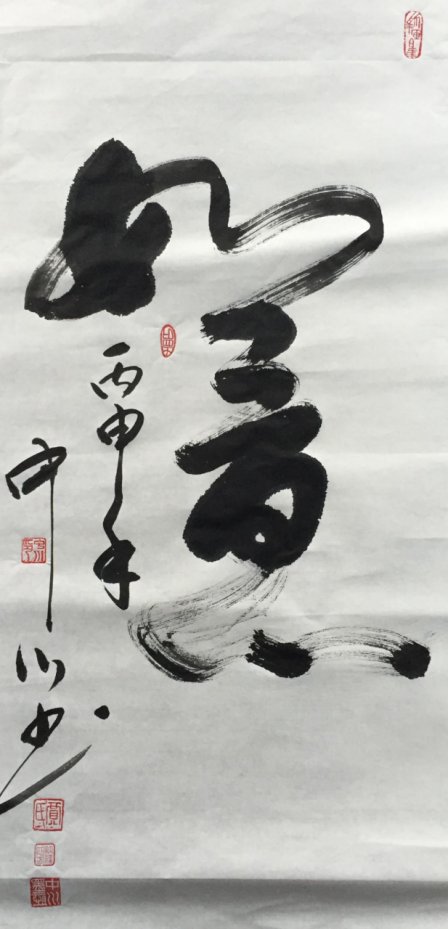 如意
丙申年
中川书